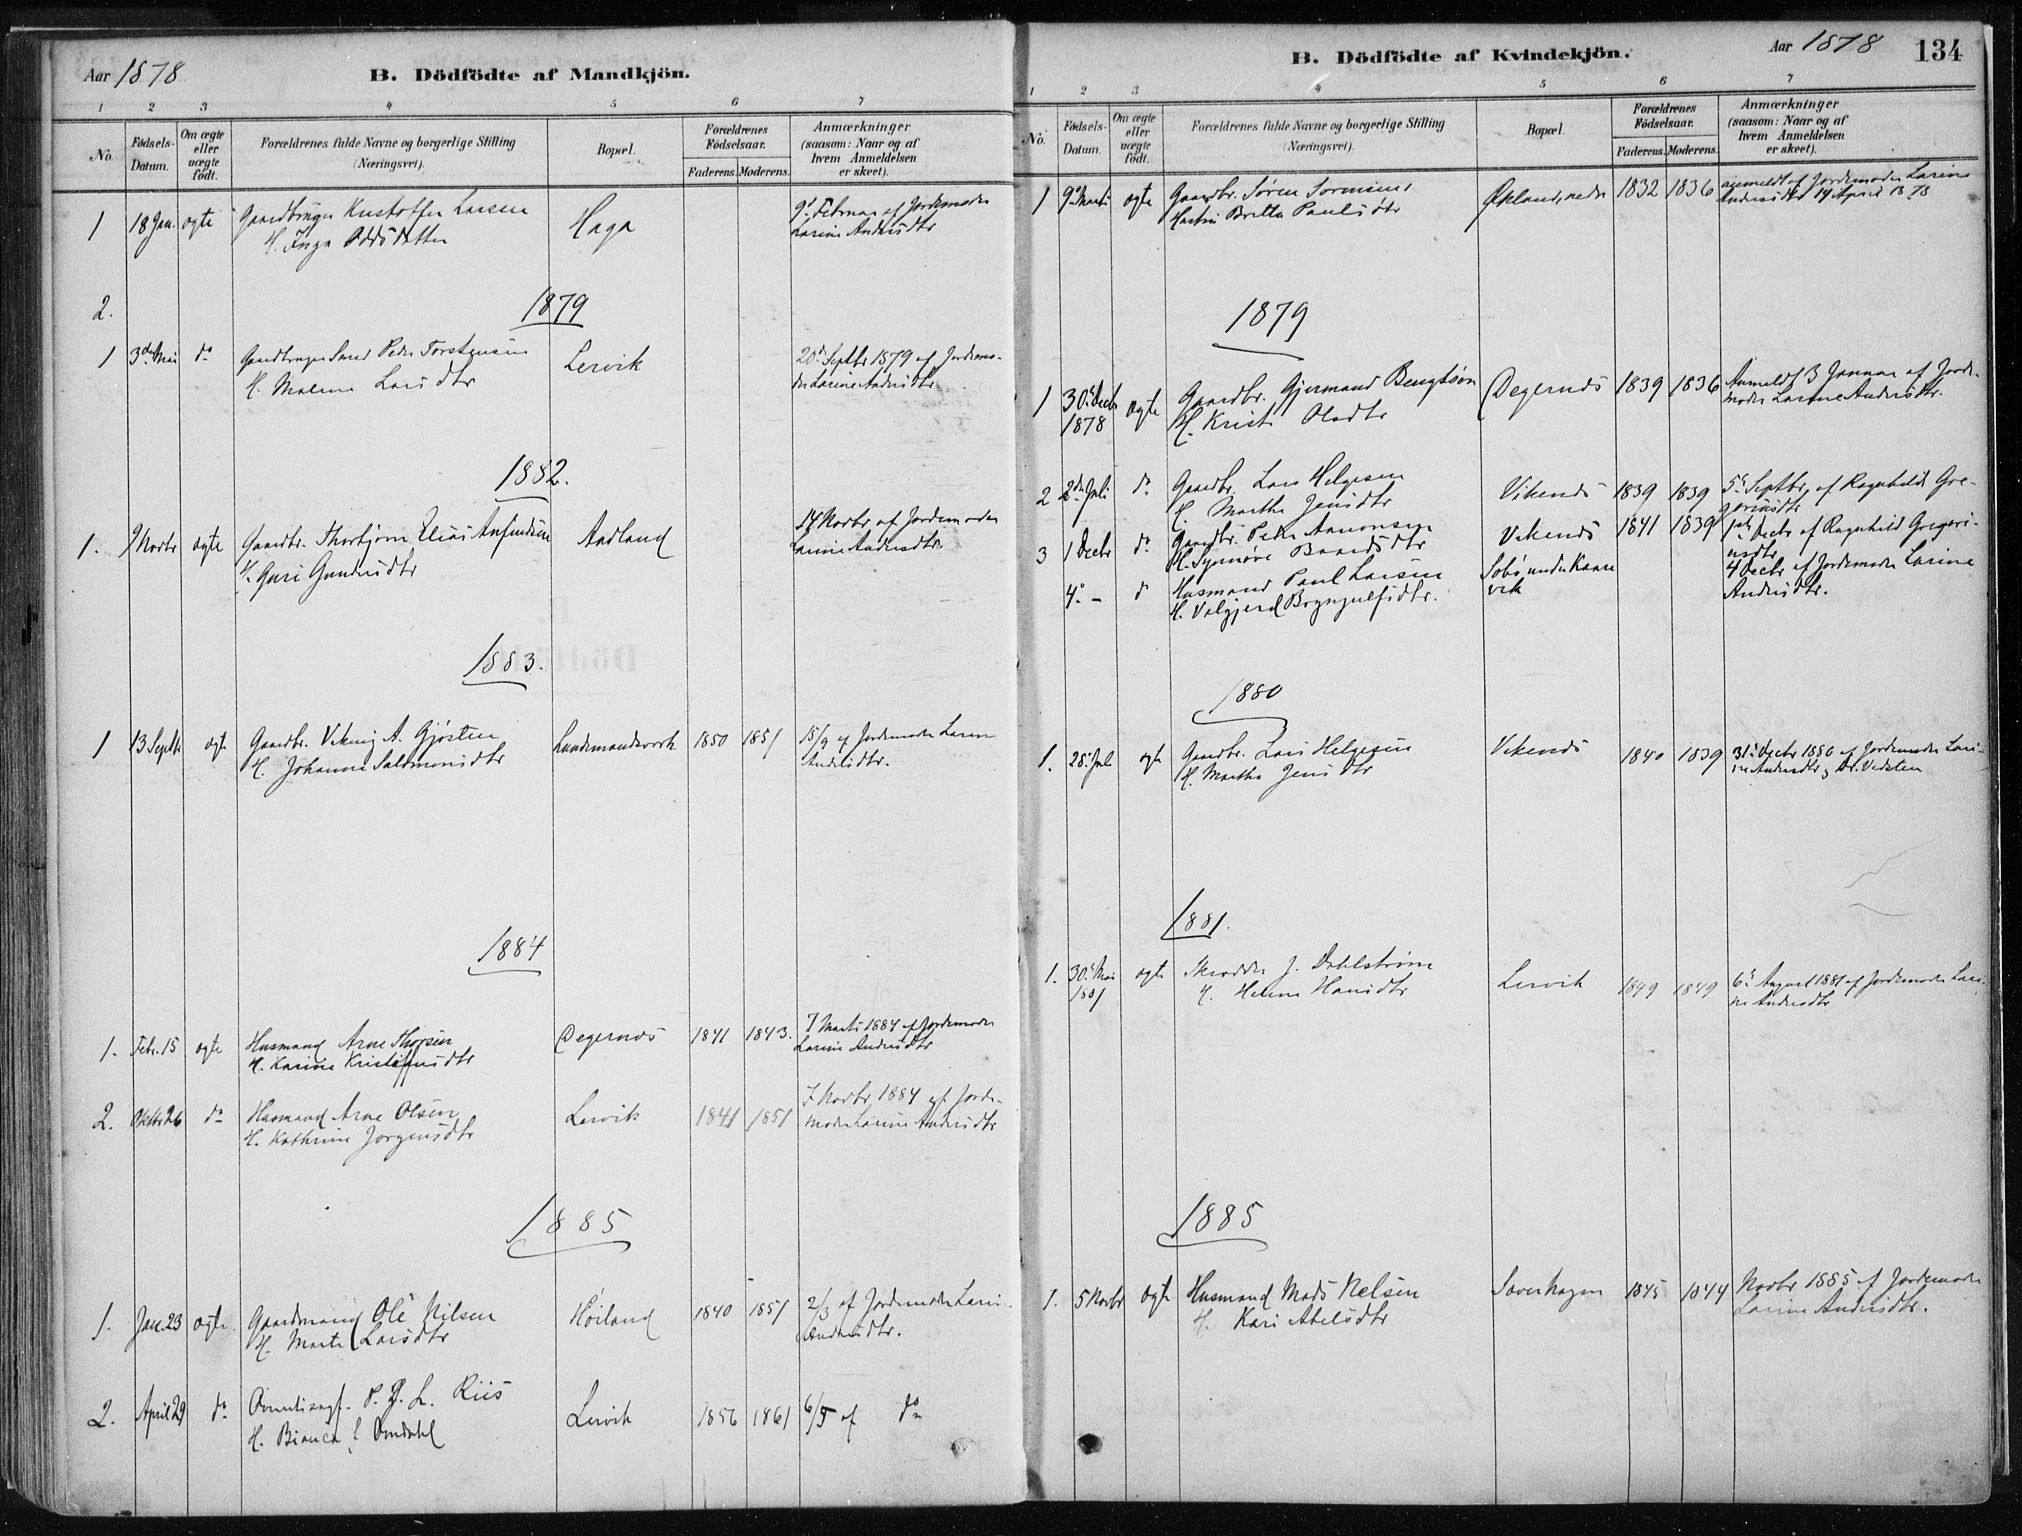 Aar 1878
B. Dödfödte af Mandkjön.
1 2 3 4 5 6 7
No.
Födsels-Datum.
Om ægte eller uægte födt.
Forældrenes fulde Navne og borgerlige Stilling
(Næringsvei).
Bopæl.
Forældrenes Födselsaar.
Faderens. Moderens.
Anmærkninger
(saasom: Naar og af
hvem Anmeldelsen
er skeet).
1 18 Jan. ægte Gaardbruger Kristoffer Larsen Haga 9de Februar af Jordemoder
H. Inga Oddsdatter Larine Andersdtr
2.
1879
1 3de Mai do Peder Torstensen Lervik 20de Septbr 1879 af Jordemo-
H. Malene Larsdtr der Larine Andersdtr
1882.
1. Novbr ægte Gaardbr. Thorbjørn Elias Anfindsen Aadland 14 Novbr af Jordemoder
H. Guri Gundersdtr Larine Andersdtr.
1883.
1 13 Septbr ægte Gaardbr. Viking A. Gjøsten 1850 1851 15/9 af Jordemoder Larine
H. Johanne Salomonsdtr Andersdtr.
1884
1. Febr. 15 ægte Husmand Arne Thorsen Degernes 1841 1843. 7 Marts 1884 af Jordemoder
H. Larine Kristoffersdtr Larine Andersdtr
2. Oktbr 26 do Husmand Arne Olsen Lervik 1841 1851 7 Novbr 1884 af Jorde-
H. Kathrine Jørgensdtr moder Larine Andersdtr
1885
1. Jan. 23 ægte Gaardmand Ole Nilsen Høiland 1840 1851 2/3 af Jordemoder Lari-
H. Marte Larsdtr Andersdtr.
2. April 29 do P. D. L. Riis Lervik 1856 1861 6/5 af do
H. Bianca Omdahl
B. Dödfödte af Kvindekjön.
Aar 1878
134
1 2 3 4 5 6 7
No.
Födsels-Datum.
Om ægte eller uægte födt.
Forældrenes fulde Navne og borgerlige Stilling
(Næringsvei).
Bopæl.
Forældrenes Födselsaar.
Faderens. Moderens.
Anmærkninger
(saasom: Naar og af
hvem Anmeldelsen
er skeet).
1 9de Marts ægte Gaardbr. Søren Sørensen Økland, nedre 1832 1836 anmeldt af Jordemoder Larine
Britta Paulsdtr Andersdtr 14 April 1878
1879
1 30 Decbr ægte Gaardbr. Gjermand Bengtsøn Degernes 1839 1836 Anmeldt 3 Januar af Jorde-
1878 H. Kristi Olsdtr moder Larine Andersdtr.
2 2de Juli do Gaardbr. Lars Helgesen Vikenes 1839 1839 5te Septbr. af Ragnhild Gre-
H. Marthe Jensdtr goriusdtr
3 1 Decbr do Gaardbr. Peder Aanonsen Vikenes 1841 1839 1ste Decbr af Ragnhild Gregori-
H. Synnøve Baardsdtr usdtr
4de - do Husmand Paul Larsen Sobø under Kaare 4 Decbr af Jordemoder Larine
H. Valgjerd Brynjulfsdtr. vik Andersdtr.
1880
1. 28 Juli ægte Gaardbr. Lars Helgesen Vikenes 1840 1839 31te Decbr 1880 af Jordemoder Lari-
H. Marthe Jensdtr ne Andersdtr
1881.
1. 30te Mai ægte Skrædder J. Dahlstrøm Lervik 1849 1849 6te August 1881 af Jordemoder Lari-
1881 H. Helene Hansdtr ne Andersdtr
1885
1. 5 Novbr ægte Husmand Mads Nelsen 1845 1844 Novbr 1885 af Jordemoder
H. Kari Abelsdtr Larine Andersdtr.